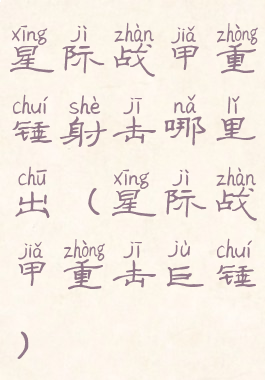 xīng jì zhàn jiǎ zhòng
星际战甲重
chuí shè jī nǎ lǐ
锤射击哪里
chū xīng jì zhàn
出(星际战
jiǎ zhòng jī jù chuí
甲重击巨锤
)